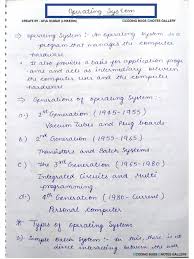 Operating System
CREATE BY - ATUL KUMAR (LINKEDIN)
CODING BUGS (NOTES GALLERY)
→ Operating System :- An operating System is a
program that manages the computer
hardware.
→ It also provides a basis for application programs
and acts as intermediary between the
computer user and the computer
hardware.
→ Generations of operating System:-
a.) 1st Generation (1945-1955)
Vacuum Tubes and Plug boards
b.) 2nd Generation (1955-1965)
Transistors and Batch Systems
c.) The 3rd Generation (1965-1980)
Integrated Circuits and Multi
programming
d.) 4th Generation (1980-Current)
Personal Computer
* Types of Operating System
1) Simple Batch System :- In this, there is no
direct interaction between the user
CODING BUGS
NOTES GALLERY